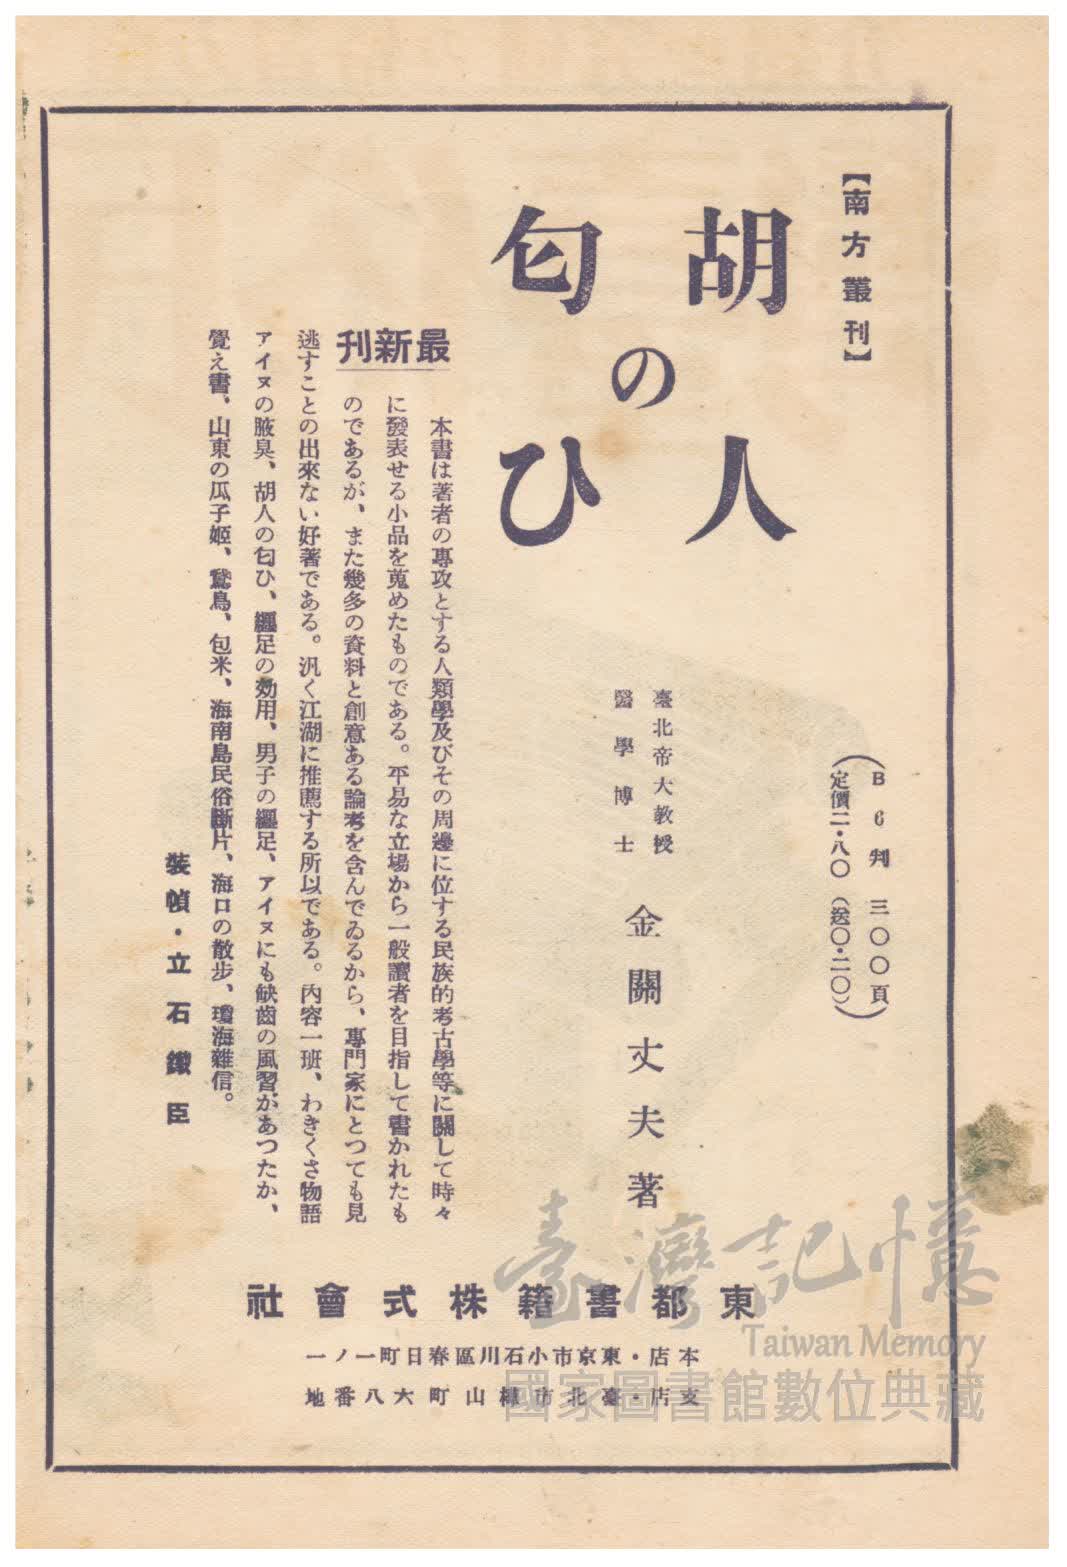 【南方叢刊】
胡人
の
匂ひ
(B6判 三〇〇頁)
(定價二・八〇(送〇・二〇))
臺北帝大教授
醫學博士
金關丈夫著
最新刊
本書は著者の專攻とする人類學及びその周邊に位する民族的考古學等に關して時々
に發表せる小品を蒐めたものである。平易な立場から一般讀者を目指して書かれたも
のであるが、また幾多の資料と創意ある論考を含んでゐるから、專門家にとつても見
逃すことの出來ない好著である。汎く江湖に推薦する所以である。內容一班、わきくさ物語
アイヌの腋臭、胡人の匂ひ、纏足の効用、男子の纏足、アイヌにも缺齒の風習があつたか、
覺え書、山東の瓜子姬、鵞鳥、包米、海南島民俗斷片、海口の散步、瓊海雜信。
裝幀・立石鐵臣
東都書籍株式會社
本店・東京市小石川區春日町一ノ一
支店・臺北市樺山町六八番地
臺灣記憶
Taiwan Memory
國家圖書館數位典藏